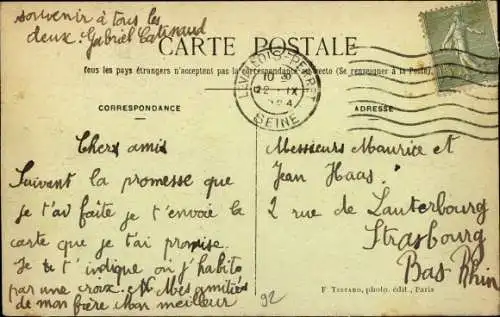 souvenir à tous les
deux. Gabriel
CARTE POSTALE
Tous les pays étrangers n'acceptent pas la correspondance au recto (Se renseigner à la Poste)
LEVALLOIS-PERRET
10
22 IX
24
SEINE
CORRESPONDANCE
ADRESSE
Chers amis
Suivant la promesse que
je t'ai faite je t'envoie la
carte que je t'ai promise.
Je t'indique où j'habite
par une croix. Mes amitiés
de mon frère Mon meilleur
Messieurs Maurice et
Jean Haas.
2 rue de Lauterbourg
Strasbourg
Bas Rhin
92
F Testard, photo. édit., Paris